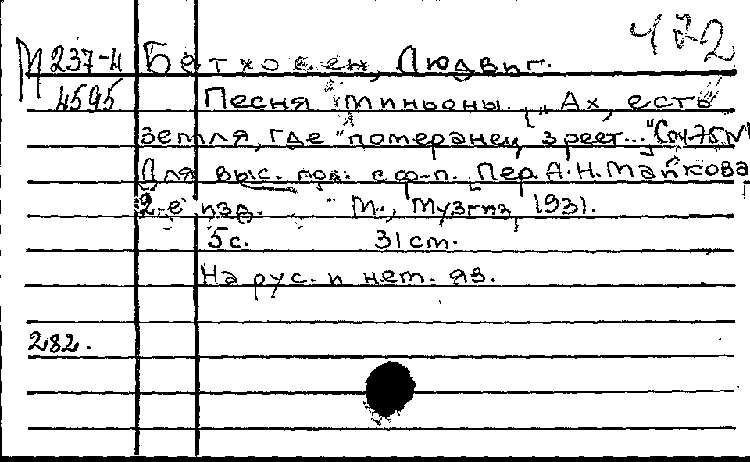 472
М 237-4 Бетховен, Людвиг.
4595 Песня Миньоны. „Ах, есть
земля, где померанец зреет..." Соч. 75 №
Для выс. гол. с ф-п. Пер. А.Н. Майкова
2-е изд. М., Музгиз, 1931.
5 с. 31 см.
На рус. и нем. яз.
282.